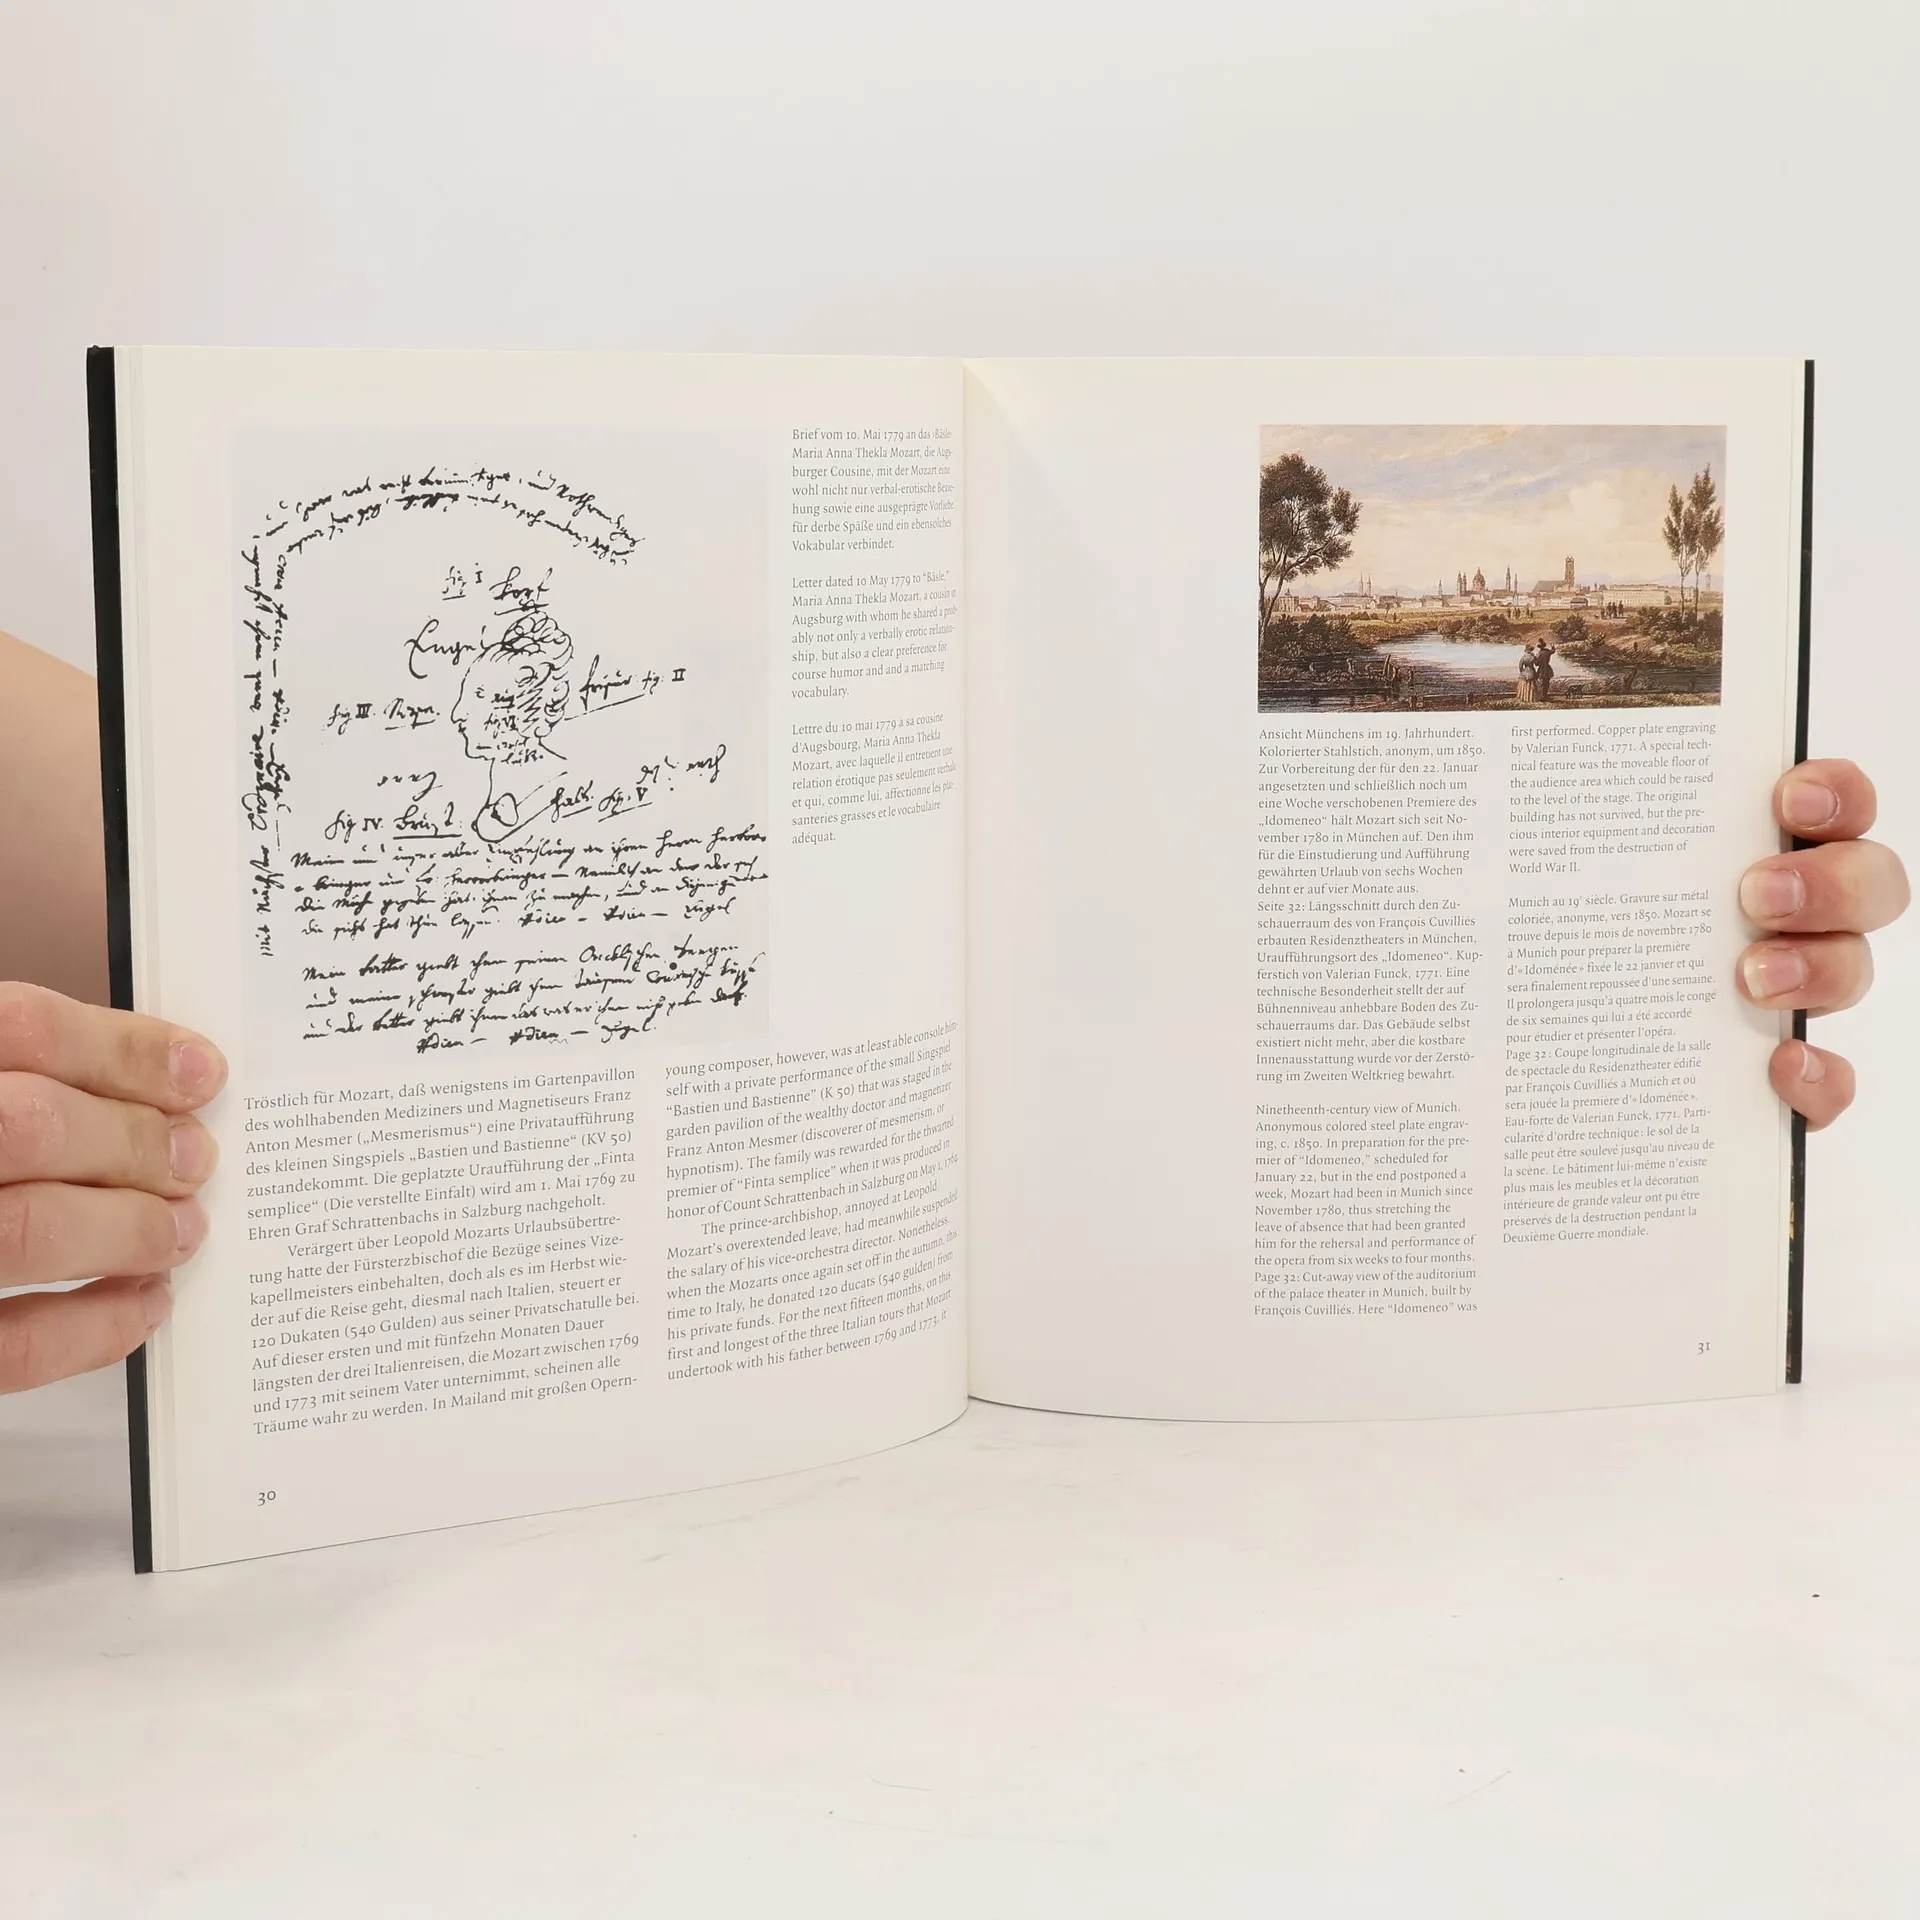 fig I Kopf
Engel
frisur fig: II
fig III. Nasen.
fig VI
fig IV. Brust:
Hals. fig. V
Adieu — Adieu — Engel.
Brief vom 10. Mai 1779 an das ›Bäsle‹
Maria Anna Thekla Mozart, die Augs-
burger Cousine, mit der Mozart eine
wohl nicht nur verbal-erotische Bezie-
hung sowie eine ausgeprägte Vorliebe
für derbe Späße und ein ebensolches
Vokabular verbindet.
Letter dated 10 May 1779 to “Bäsle,”
Maria Anna Thekla Mozart, a cousin in
Augsburg with whom he shared a prob-
ably not only a verbally erotic relation-
ship, but also a clear preference for
course humor and and a matching
vocabulary.
Lettre du 10 mai 1779 à sa cousine
d’Augsbourg, Maria Anna Thekla
Mozart, avec laquelle il entretient une
relation érotique pas seulement verbale
et qui, comme lui, affectionne les plai-
santeries grasses et le vocabulaire
adéquat.
Tröstlich für Mozart, daß wenigstens im Gartenpavillon
des wohlhabenden Mediziners und Magnetiseurs Franz
Anton Mesmer („Mesmerismus“) eine Privataufführung
des kleinen Singspiels „Bastien und Bastienne“ (KV 50)
zustandekommt. Die geplatzte Uraufführung der „Finta
semplice“ (Die verstellte Einfalt) wird am 1. Mai 1769 zu
Ehren Graf Schrattenbachs in Salzburg nachgeholt.
Verärgert über Leopold Mozarts Urlaubsübertre-
tung hatte der Fürsterzbischof die Bezüge seines Vize-
kapellmeisters einbehalten, doch als es im Herbst wie-
der auf die Reise geht, diesmal nach Italien, steuert er
120 Dukaten (540 Gulden) aus seiner Privatschatulle bei.
Auf dieser ersten und mit fünfzehn Monaten Dauer
längsten der drei Italienreisen, die Mozart zwischen 1769
und 1773 mit seinem Vater unternimmt, scheinen alle
Träume wahr zu werden. In Mailand mit großen Opern-
young composer, however, was at least able console him-
self with a private performance of the small Singspiel
“Bastien und Bastienne” (K 50) that was staged in the
garden pavilion of the wealthy doctor and magnetizer
Franz Anton Mesmer (discoverer of mesmerism, or
hypnotism). The family was rewarded for the thwarted
premier of “Finta semplice” when it was produced in
honor of Count Schrattenbach in Salzburg on May 1, 1769.
The prince-archbishop, annoyed at Leopold
Mozart’s overextended leave, had meanwhile suspended
the salary of his vice-orchestra director. Nonetheless,
when the Mozarts once again set off in the autumn, this
time to Italy, he donated 120 ducats (540 gulden) from
his private funds. For the next fifteen months, on this
first and longest of the three Italian tours that Mozart
undertook with his father between 1769 and 1773, it
30
Ansicht Münchens im 19. Jahrhundert.
Kolorierter Stahlstich, anonym, um 1850.
Zur Vorbereitung der für den 22. Januar
angesetzten und schließlich noch um
eine Woche verschobenen Premiere des
„Idomeneo“ hält Mozart sich seit No-
vember 1780 in München auf. Den ihm
für die Einstudierung und Aufführung
gewährten Urlaub von sechs Wochen
dehnt er auf vier Monate aus.
Seite 32: Längsschnitt durch den Zu-
schauerraum des von François Cuvilliés
erbauten Residenztheaters in München,
Uraufführungsort des „Idomeneo“. Kup-
ferstich von Valerian Funck, 1771. Eine
technische Besonderheit stellt der auf
Bühnenniveau anhebbare Boden des Zu-
schauerraums dar. Das Gebäude selbst
existiert nicht mehr, aber die kostbare
Innenausstattung wurde vor der Zerstö-
rung im Zweiten Weltkrieg bewahrt.
Ninetheenth-century view of Munich.
Anonymous colored steel plate engrav-
ing, c. 1850. In preparation for the pre-
mier of “Idomeneo,” scheduled for
January 22, but in the end postponed a
week, Mozart had been in Munich since
November 1780, thus stretching the
leave of absence that had been granted
him for the rehersal and performance of
the opera from six weeks to four months.
Page 32: Cut-away view of the auditorium
of the palace theater in Munich, built by
François Cuvilliés. Here “Idomeneo” was
first performed. Copper plate engraving
by Valerian Funck, 1771. A special tech-
nical feature was the moveable floor of
the audience area which could be raised
to the level of the stage. The original
building has not survived, but the pre-
cious interior equipment and decoration
were saved from the destruction of
World War II.
Munich au 19e siècle. Gravure sur métal
coloriée, anonyme, vers 1850. Mozart se
trouve depuis le mois de novembre 1780
à Munich pour préparer la première
d’« Idoménée » fixée le 22 janvier et qui
sera finalement repoussée d’une semaine.
Il prolongera jusqu’à quatre mois le congé
de six semaines qui lui a été accordé
pour étudier et présenter l’opéra.
Page 32 : Coupe longitudinale de la salle
de spectacle du Residenztheater édifié
par François Cuvilliés à Munich et où
sera jouée la première d’« Idoménée ».
Eau-forte de Valerian Funck, 1771. Parti-
cularité d’ordre technique : le sol de la
salle peut être soulevé jusqu’au niveau de
la scène. Le bâtiment lui-même n’existe
plus mais les meubles et la décoration
intérieure de grande valeur ont pu être
préservés de la destruction pendant la
Deuxième Guerre mondiale.
31